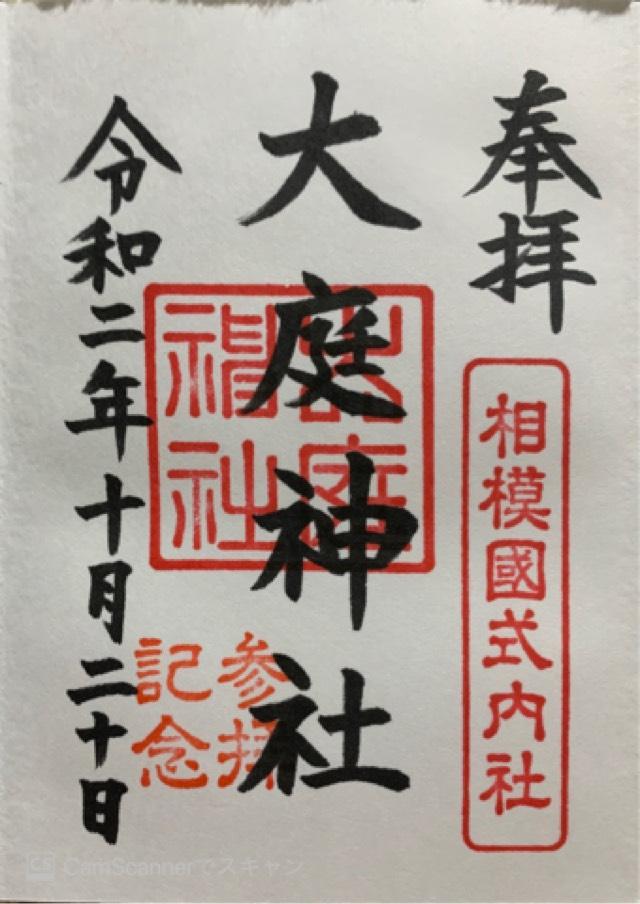 奉拝
相模國式内社
大庭神社
大庭神社
参拝記念
令和二年十月二十日
CS CamScannerでスキャン